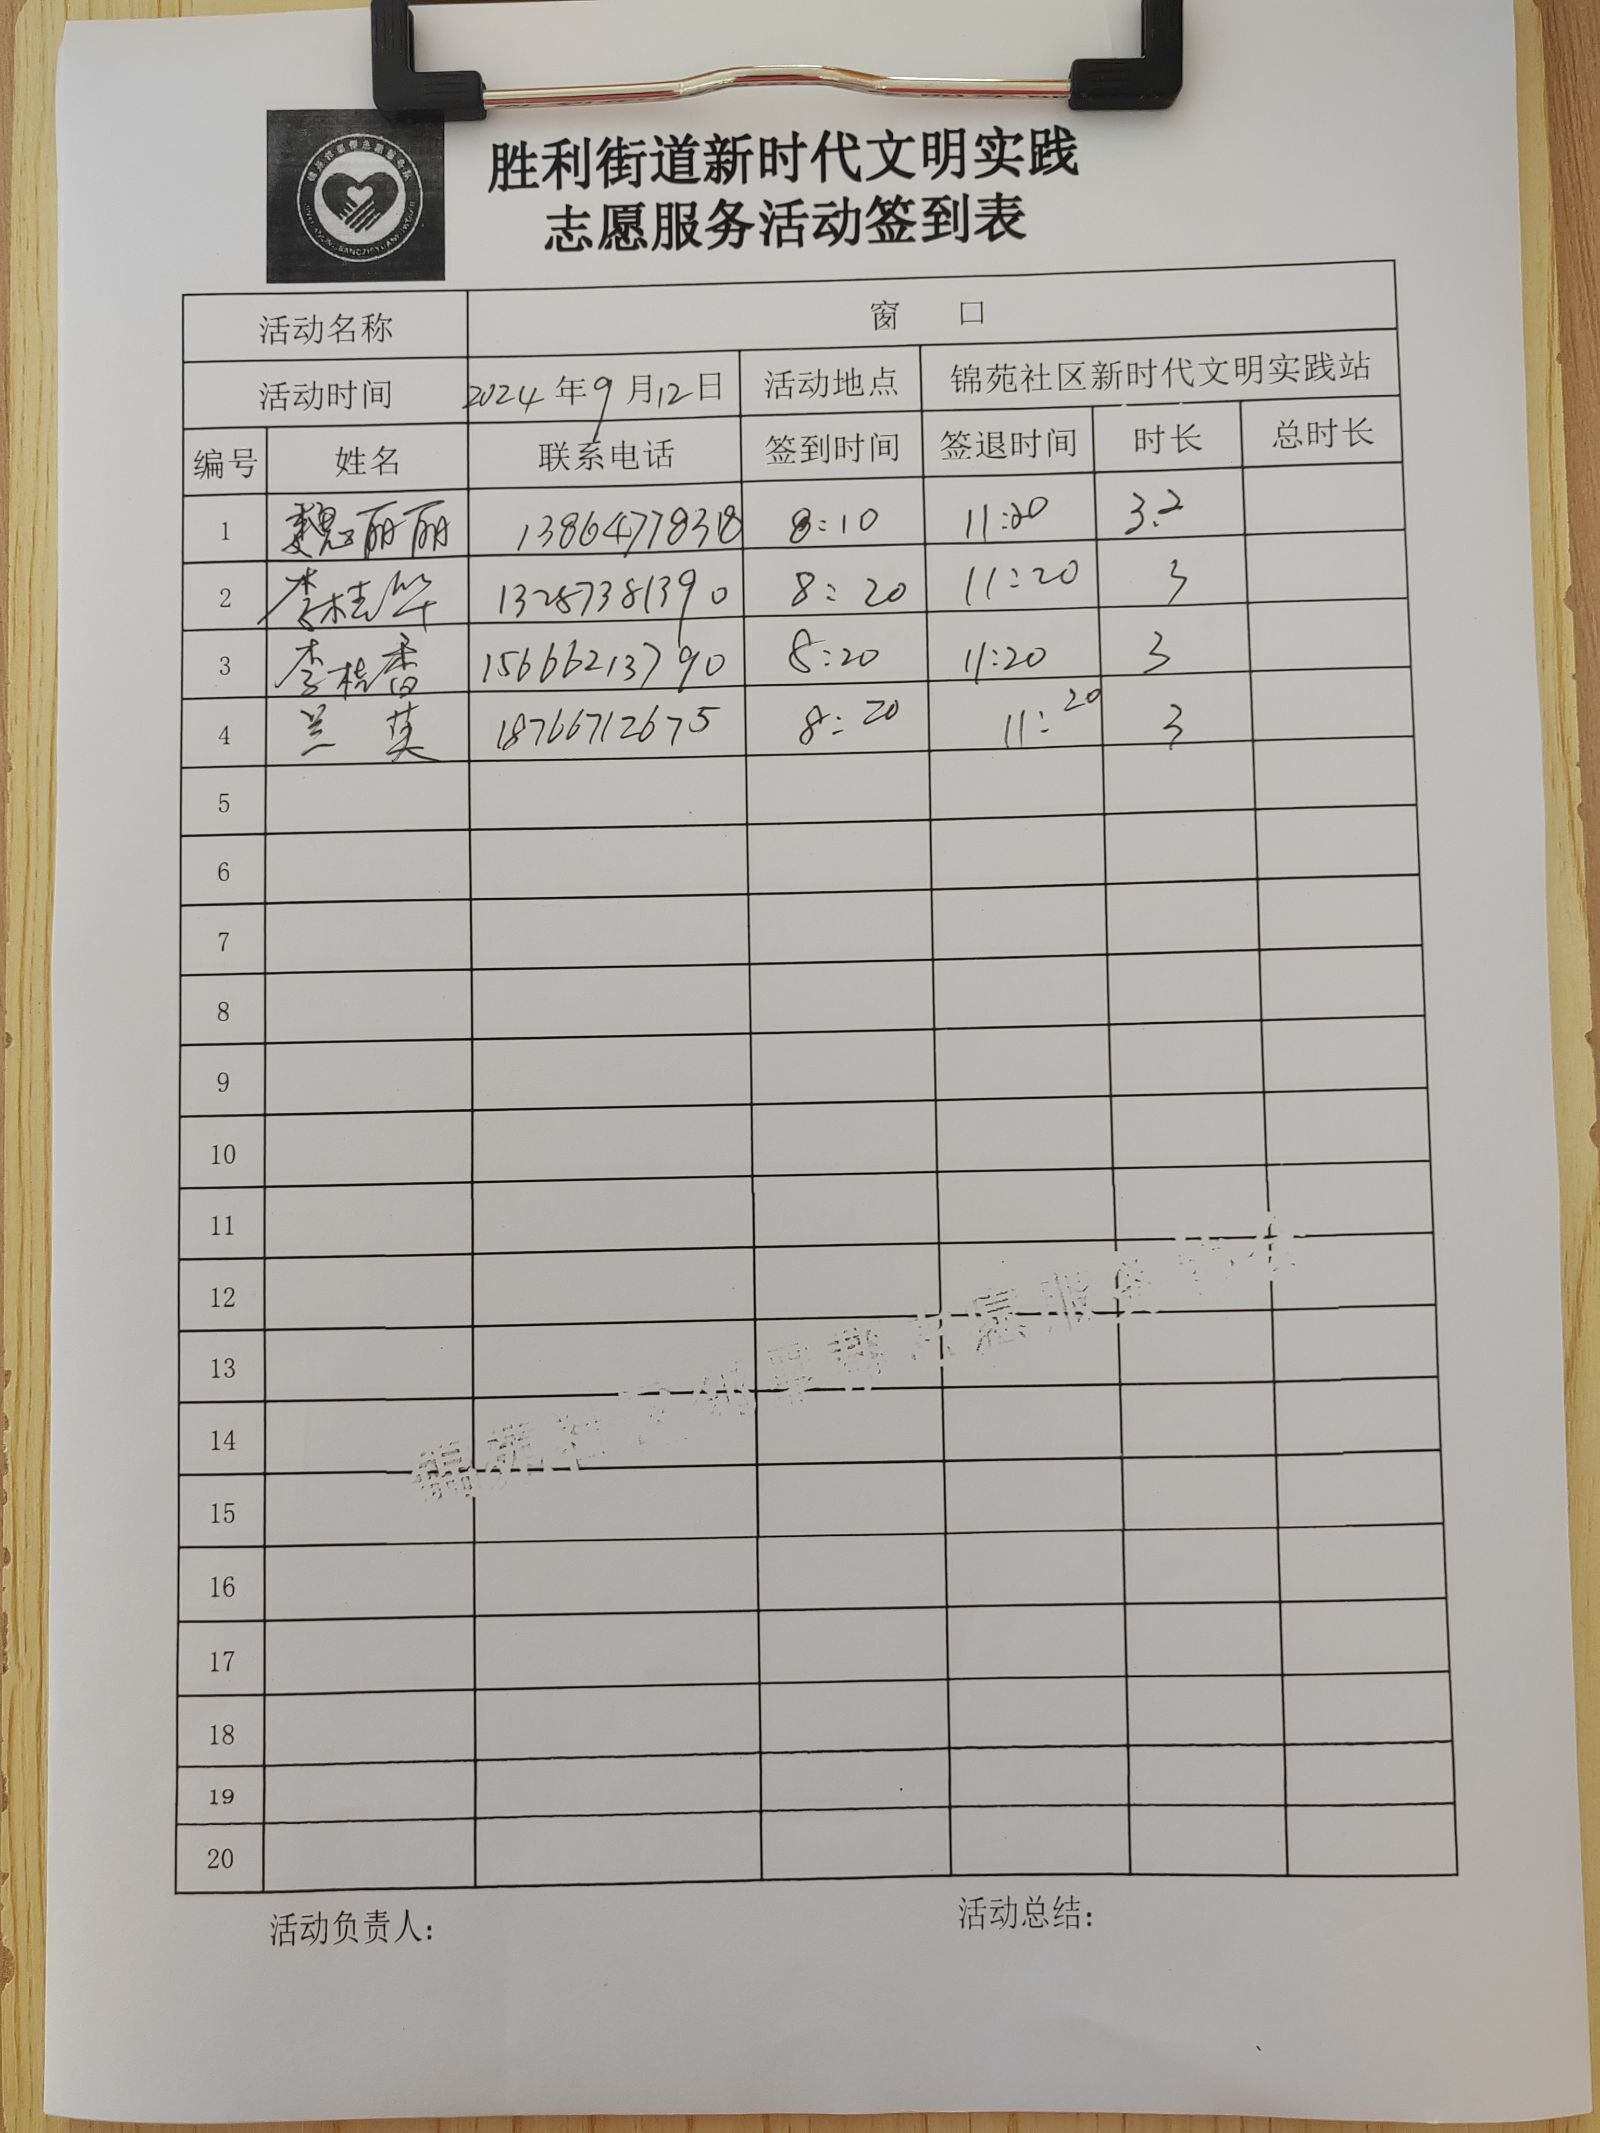 胜利街道新时代文明实践
志愿服务活动签到表
活动名称 窗 口
活动时间 2024年9月12日 活动地点 锦苑社区新时代文明实践站
编号 姓名 联系电话 签到时间 签退时间 时长 总时长
1 魏丽丽 13864778318 8:10 11:20 3.2
2 李桂华 13287381390 8:20 11:20 3
3 李桂香 15666213790 8:20 11:20 3
4 兰英 18766712675 8:20 11:20 3
5
6
7
8
9
10
11
12
13
14
15
16
17
18
19
20
活动负责人: 活动总结: